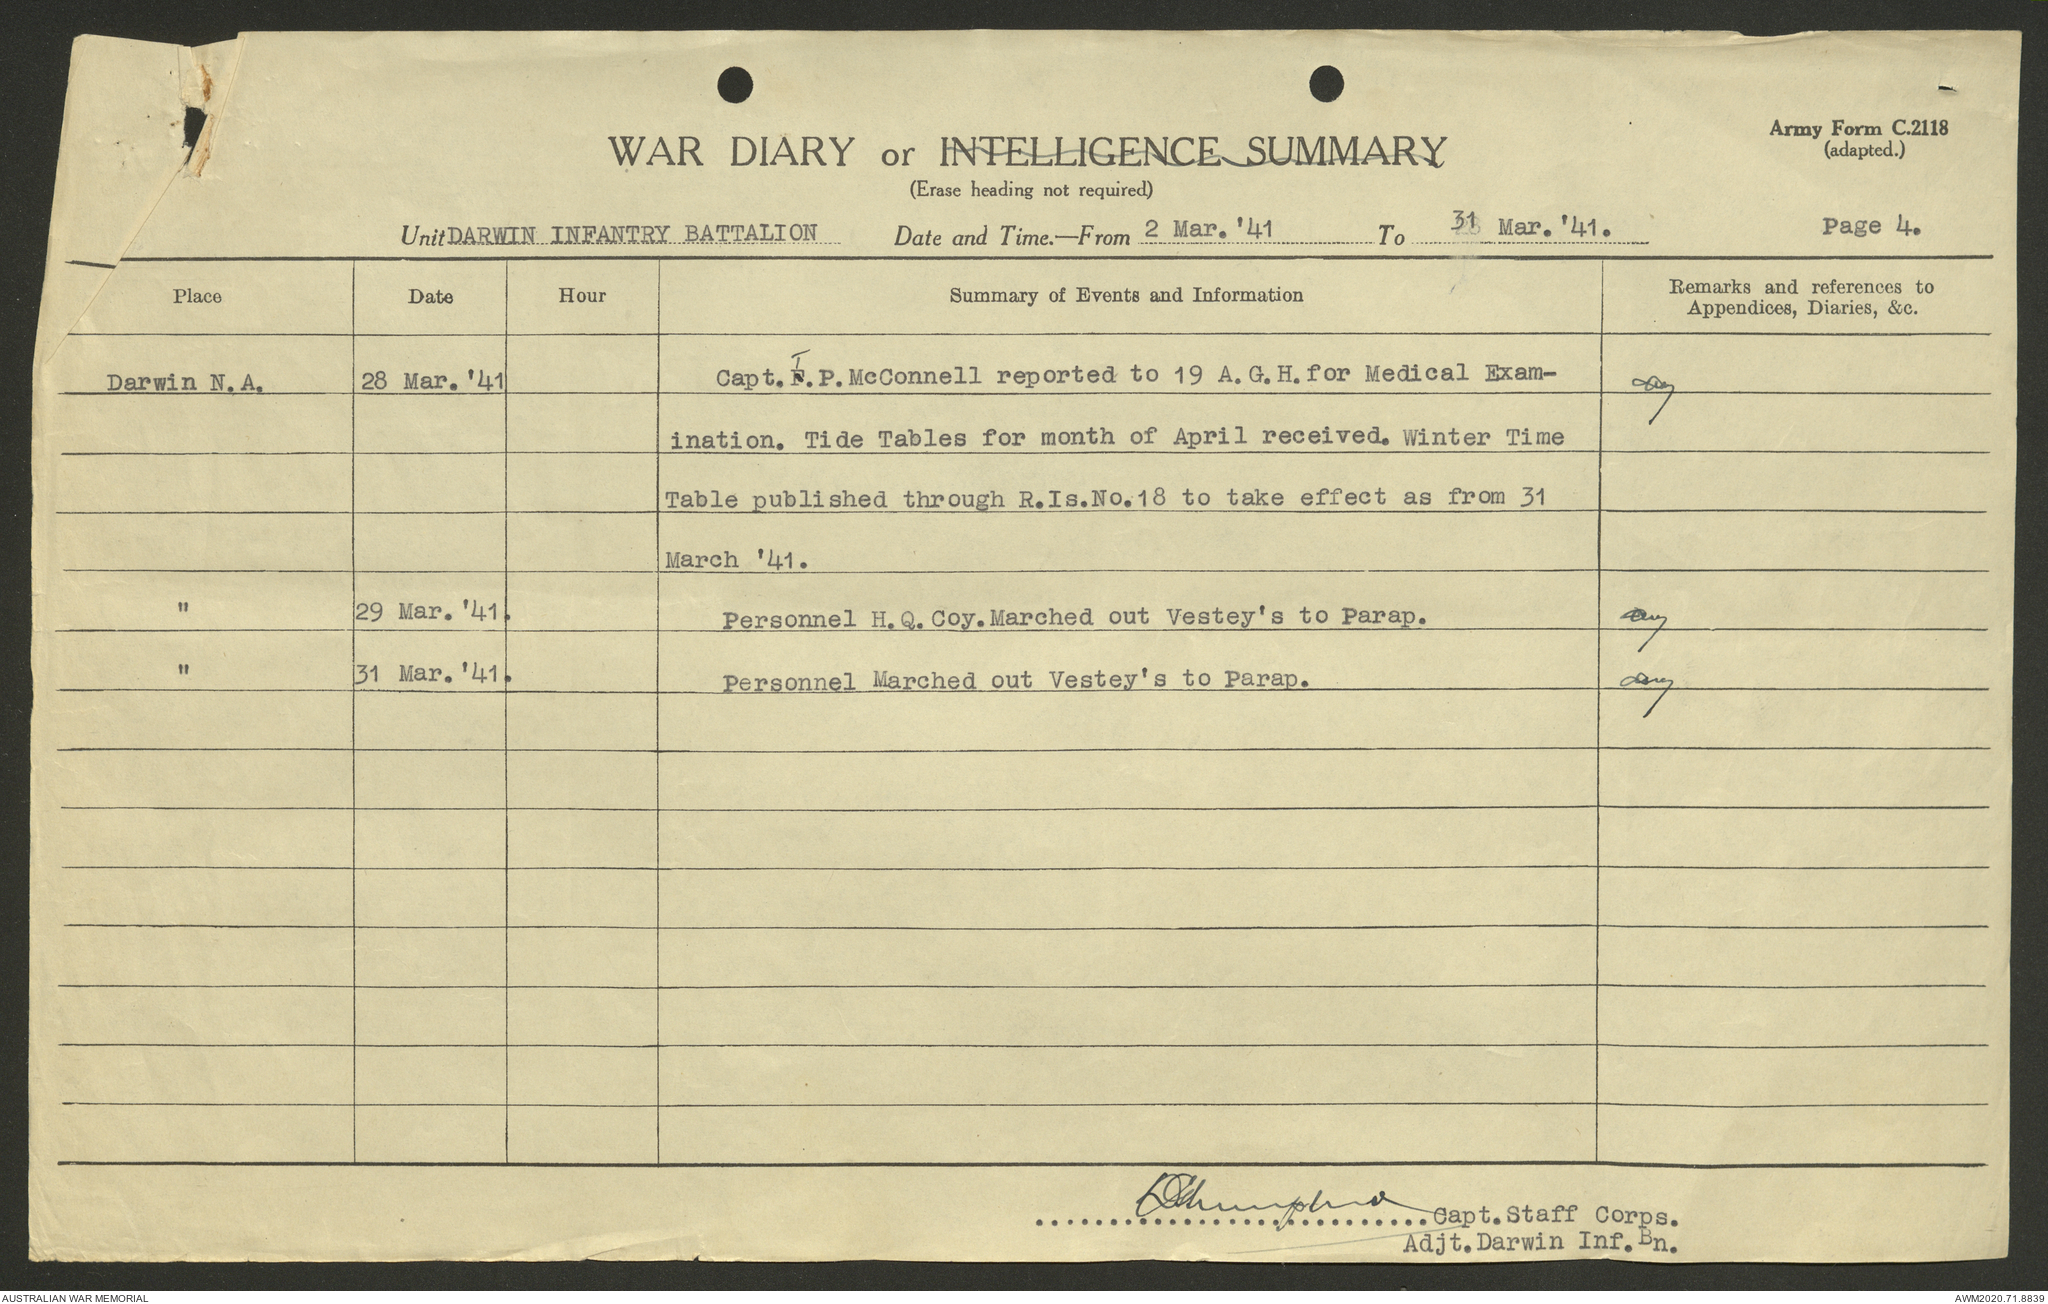 Army Form C.2118
(adapted.)
WAR DIARY or INTELLIGENCE SUMMARY
(Erase heading not required)
Unit DARWIN INFANTRY BATTALION Date and Time.—From 2 Mar. '41 To 31 Mar. '41. Page 4.
Place Date Hour Summary of Events and Information Remarks and references to
Appendices, Diaries, &c.
Darwin N.A. 28 Mar. '41 Capt. I.P. McConnell reported to 19 A.G.H. for Medical Exam-
ination. Tide Tables for month of April received. Winter Time
Table published through R.Is.No.18 to take effect as from 31
March '41.
" 29 Mar. '41. Personnel H.Q. Coy. Marched out Vestey's to Parap.
" 31 Mar. '41. Personnel Marched out Vestey's to Parap.
Capt. Staff Corps.
Adjt. Darwin Inf. Bn.
AUSTRALIAN WAR MEMORIAL AWM2020.71.8839